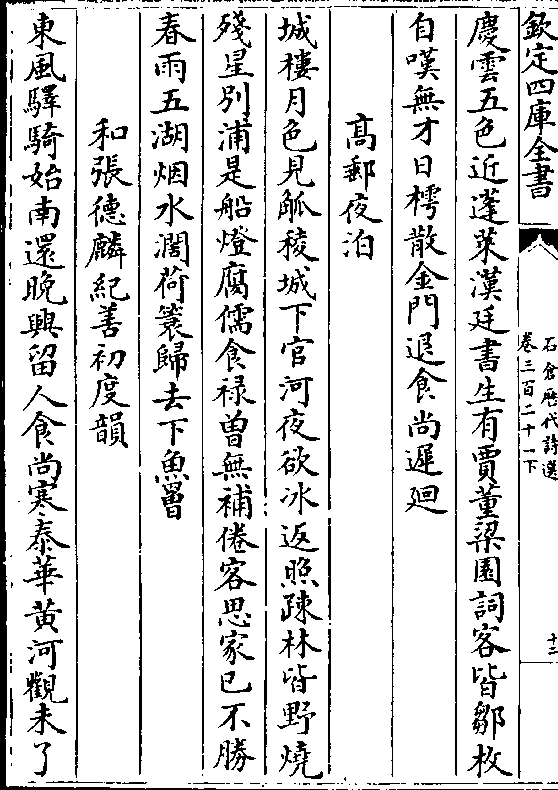 欽定四庫全書
石倉歷代詩選
卷三百二十一下
十二
慶雲五色近蓬萊漢廷書生有賈董梁園詞客皆鄒枚
自嘆無才日樗散金門退食尚遲廻
高郵夜泊
城樓月色見觚稜城下官河夜欲冰返照疎林皆野燒
殘星別浦是船燈腐儒食禄曾無補倦客思家已不勝
春雨五湖烟水濶荷蓑歸去下魚罾
和張德麟紀善初度韻
東風驛騎始南還晚興留人食尚寒泰華黄河觀未了